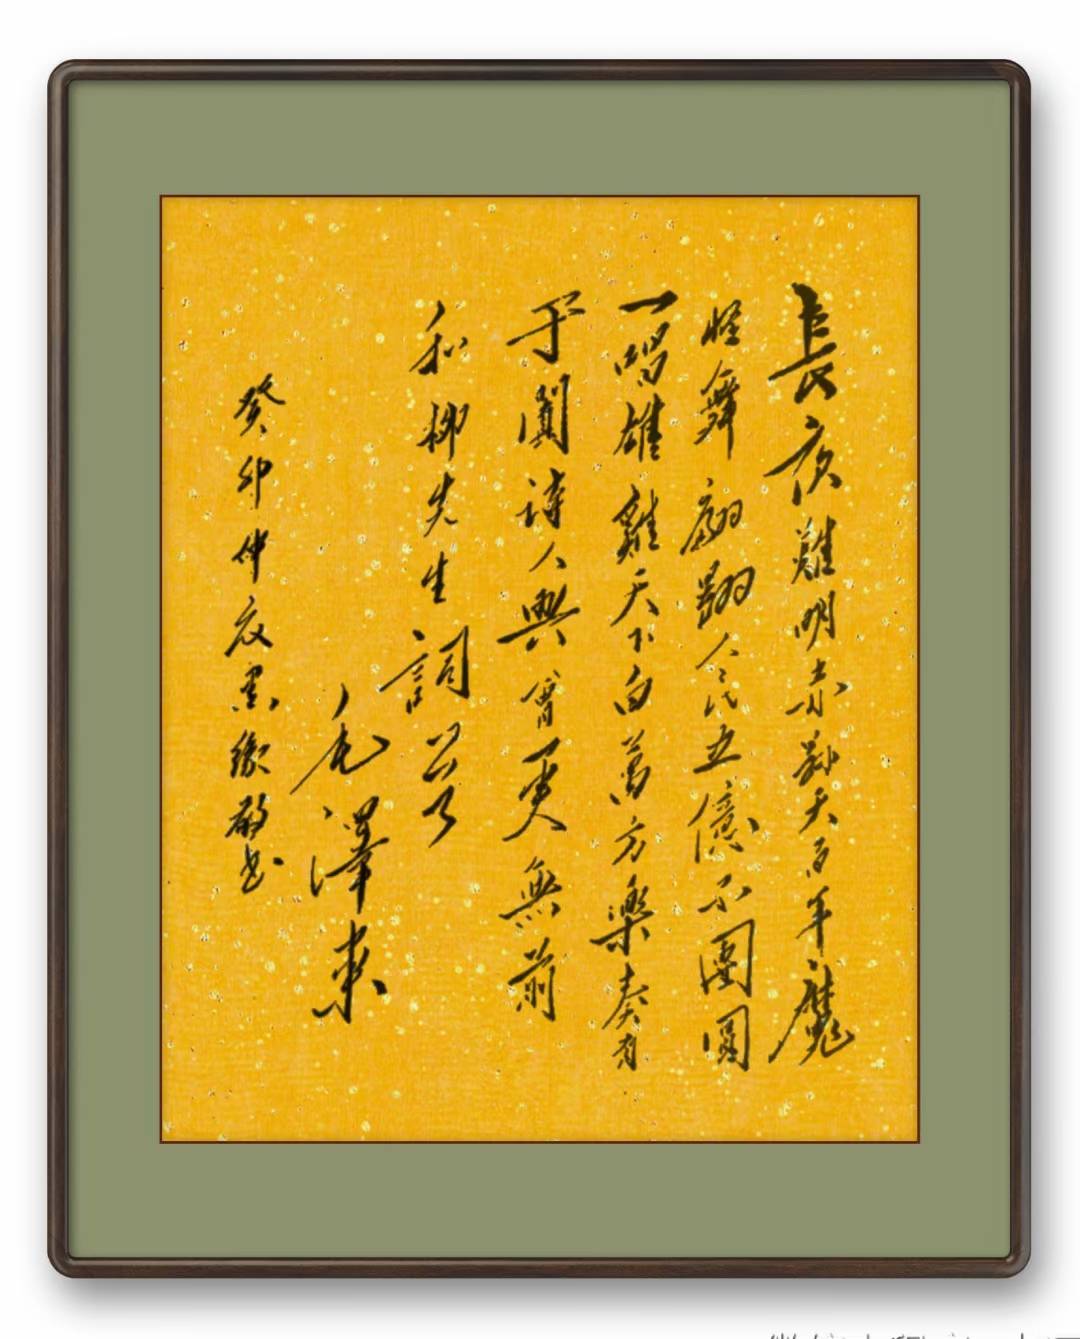 長夜難明赤縣天百年魔
怪舞翩翩人民五億不團圓
一唱雄雞天下白萬方樂奏有
于闐詩人興會更無前
和柳先生詞一首
毛澤東
癸卯仲夏書